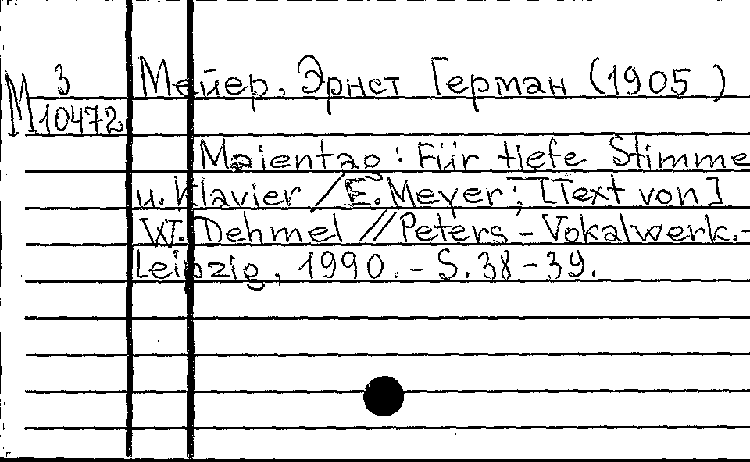 М 3/10472
Мейер, Эрнст Герман (1905 )
Maientag: Für tiefe Stimme
u. Klavier / E. Meyer; [Text von]
W. Dehmel // Peters - Vokalwerk. -
Leipzig, 1990. - S. 38-39.